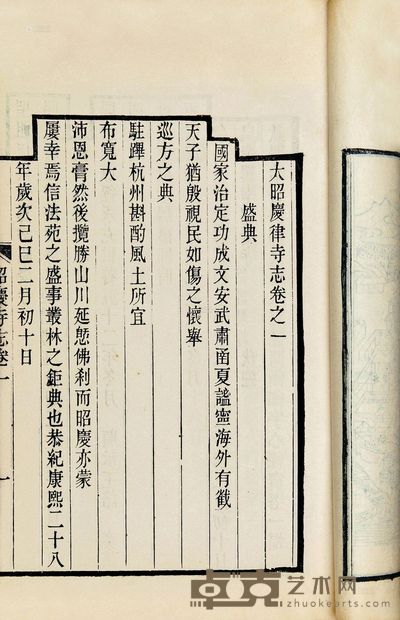 大昭慶律寺志卷之一
盛典
國家治定功成文安武肅函夏謐寧海外有截
天子猶殷視民如傷之懷舉
巡方之典
駐蹕杭州斟酌風土所宜
布寬大
沛恩膏然後攬勝山川延憩佛刹而昭慶亦蒙
屢幸焉信法苑之盛事叢林之鉅典也恭紀康熙二十八
年歲次己巳二月初十日
昭慶寺志卷一
一
卓克艺术网
www.zhuokearts.com